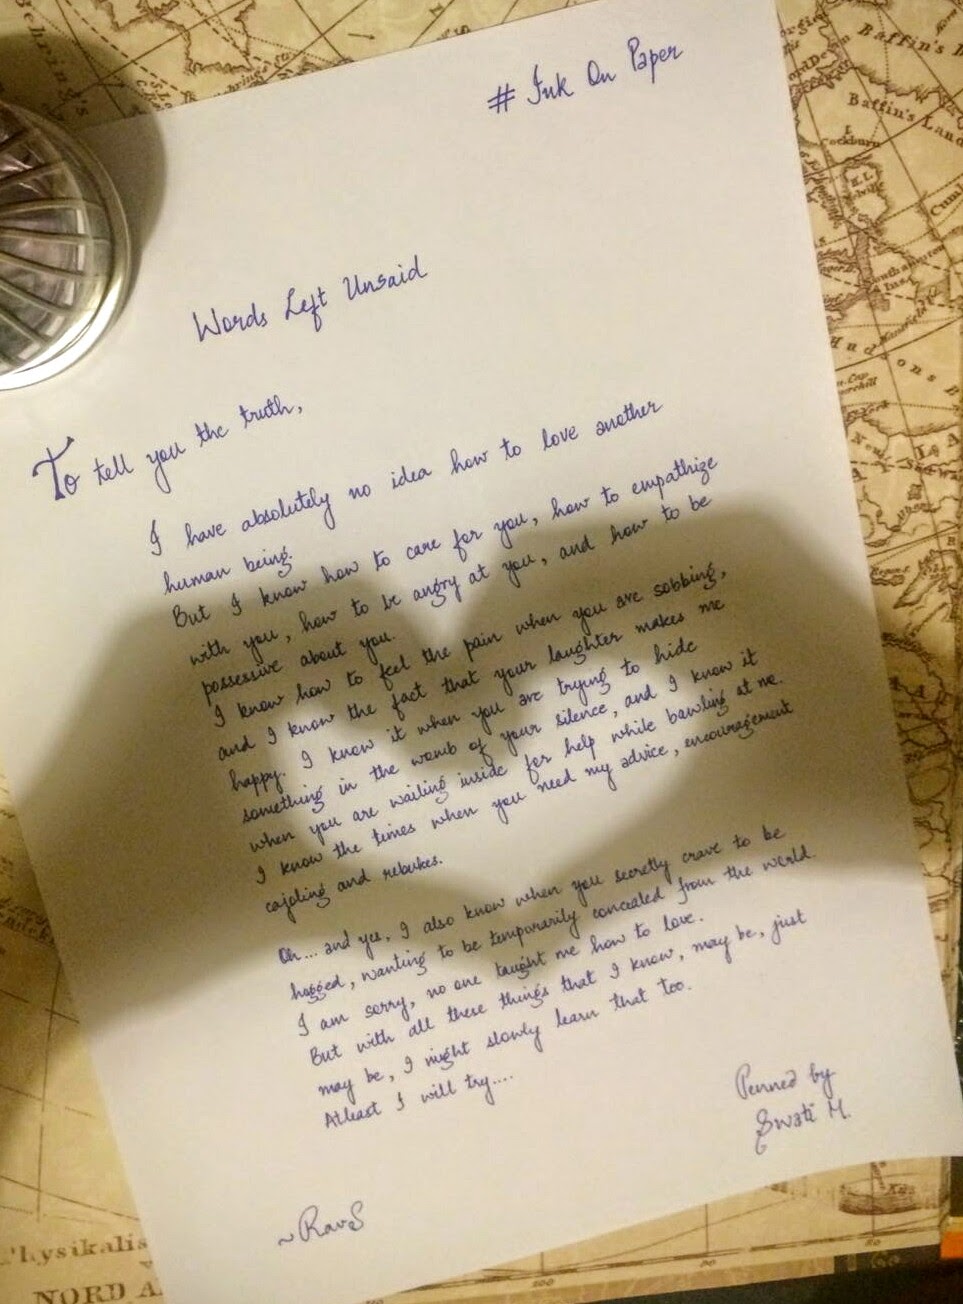 # Ink On Paper
Words Left Unsaid
To tell you the truth,
I have absolutely no idea how to love another
human being.
But I know how to care for you, how to empathize
with you, how to be angry at you, and how to be
possessive about you.
I know how to feel the pain when you are sobbing,
and I know the fact that your laughter makes me
happy. I know it when you are trying to hide
something in the womb of your silence, and I know it
when you are wailing inside for help while bawling at me.
I know the times when you need my advice, encouragement
cajoling and rebukes.
Oh... and yes, I also know when you secretly crave to be
hogged, wanting to be temporarily concealed from the world.
I am sorry, no one taught me how to love.
But with all these things that I know, may be, just
may be, I might slowly learn that too.
Atleast I will try....
Penned by
Swati M.
~RavS
Baffin's
Baffin's Land
Cockburn
Hudsons B
Physikalis
NORD A